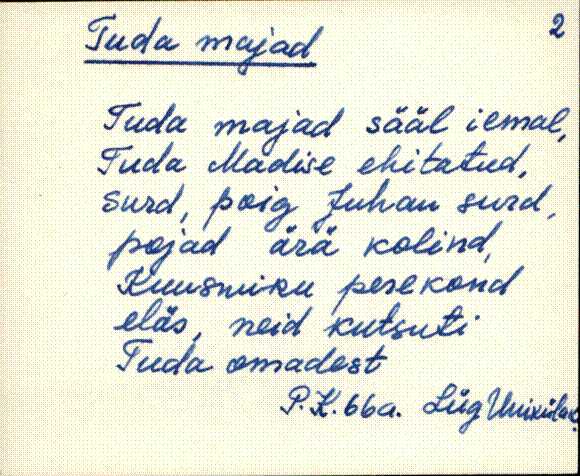 2
Tuda majad
Tuda majad sääl iemal,
Tuda Madise ehitatud,
surd, poig Juhan surd,
pojad ärä kolind,
Kuusmiku perekond
eläs, neid kutsuti
Tuda omadest
P.K. 66a. Liig Unikülas